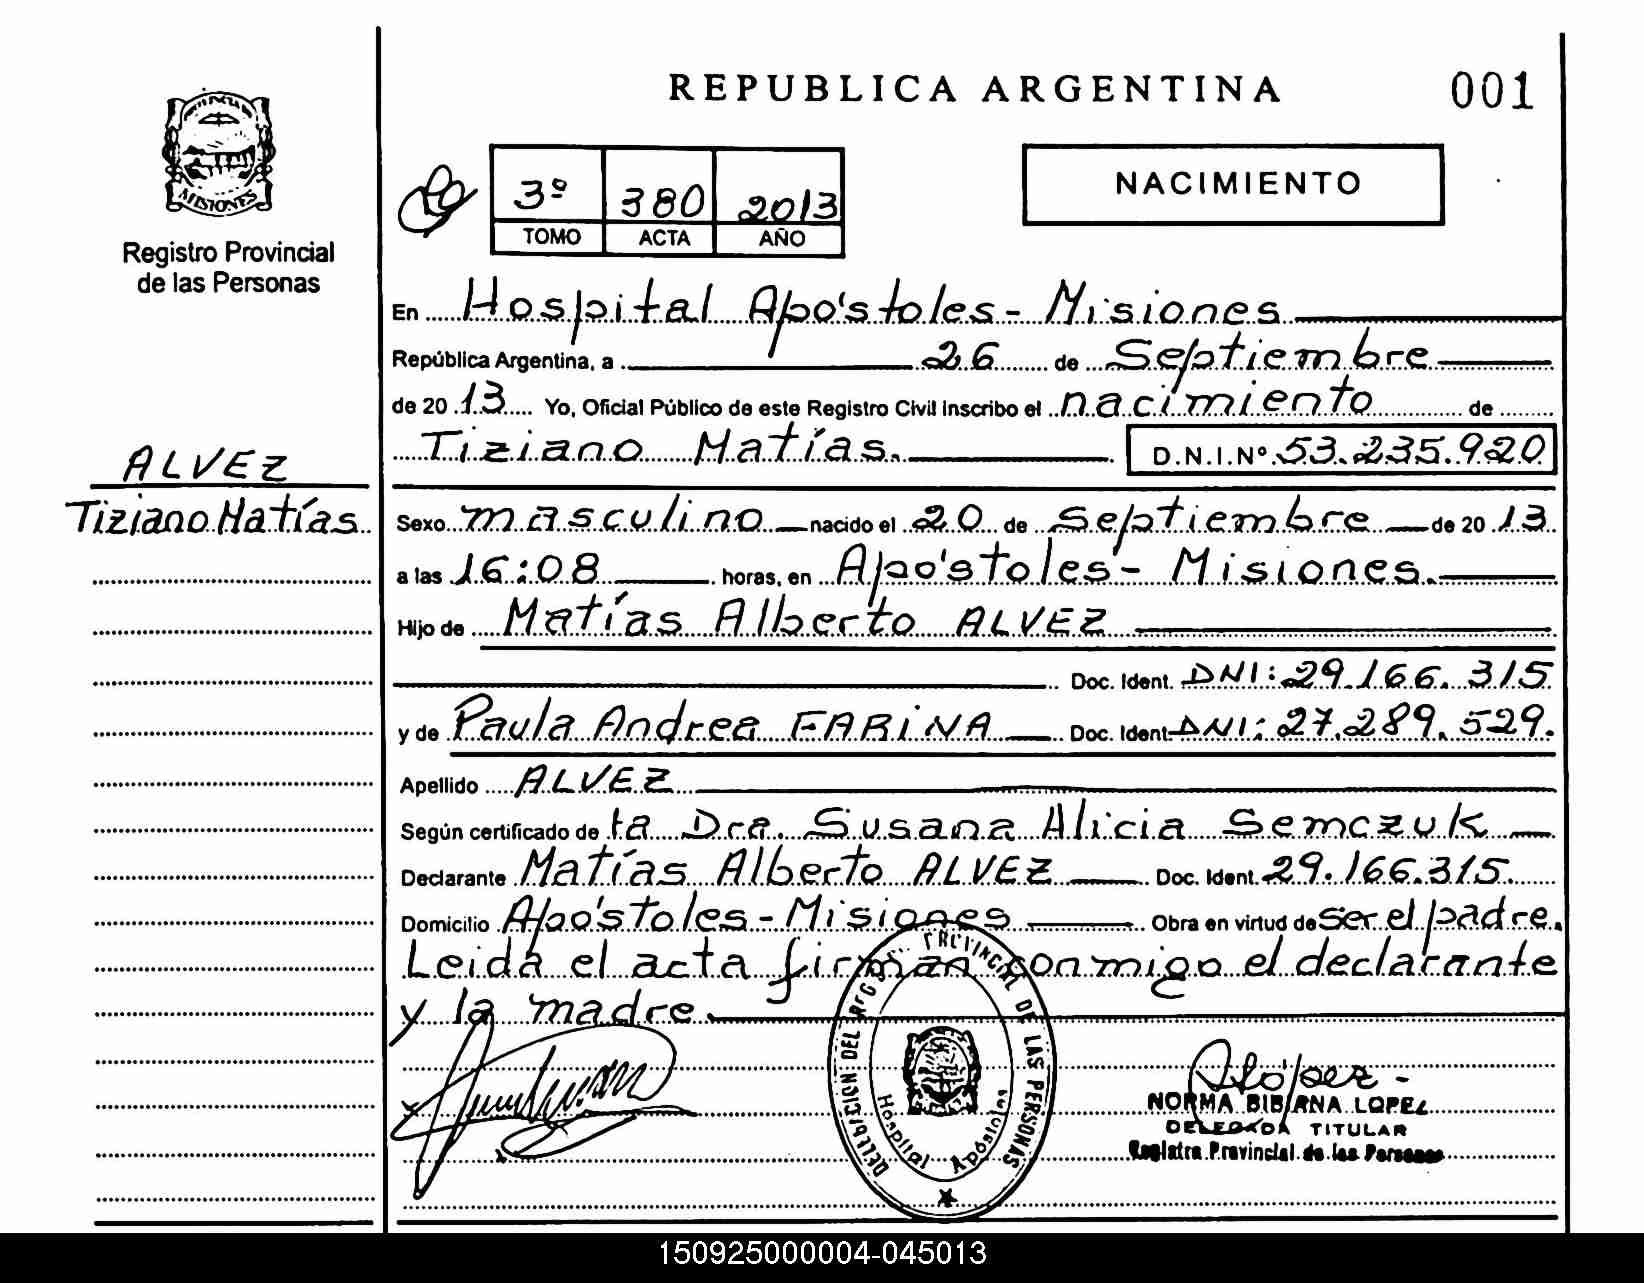 REPUBLICA ARGENTINA
001
MISIONES
Registro Provincial
de las Personas
3º 380 2013
TOMO ACTA AÑO
NACIMIENTO
En Hospital Apóstoles - Misiones
República Argentina, a 26 de Septiembre
de 20 13 Yo, Oficial Público de este Registro Civil inscribo el nacimiento de
Tiziano Matías. D.N.I.Nº 53.235.920
ALVEZ
Tiziano Matías
Sexo masculino nacido el 20 de Septiembre de 20 13
a las 16:08 horas, en Apóstoles - Misiones.
Hijo de Matías Alberto ALVEZ
Doc. Ident. DNI: 29.166.315
y de Paula Andrea FARINA Doc. Ident DNI: 27.289.529.
Apellido ALVEZ
Según certificado de la Dra. Susana Alicia Semczuk
Declarante Matías Alberto ALVEZ Doc. Ident. 29.166.315
Domicilio Apóstoles - Misiones Obra en virtud de ser el padre.
Leida el acta firman conmigo el declarante
y la madre.
DEL REGISTRO PROVINCIAL DE LAS PERSONAS
Hospital Apóstoles
NORMA BIBIANA LOPEZ
DELEGADA TITULAR
Registro Provincial de las Personas
150925000004-045013